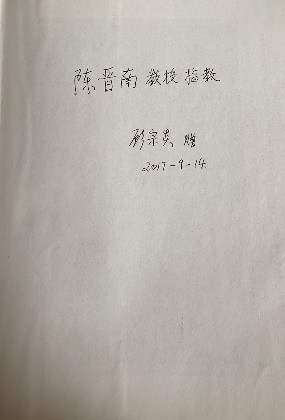 陈晋南教授指教
彭宗夹 赠
2017-9-14